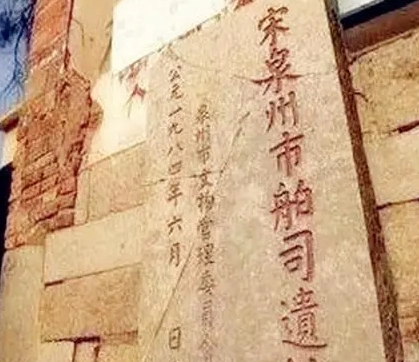 宋泉州市舶司遺
泉州市文物管理委員会
公元一九八四年六月 日